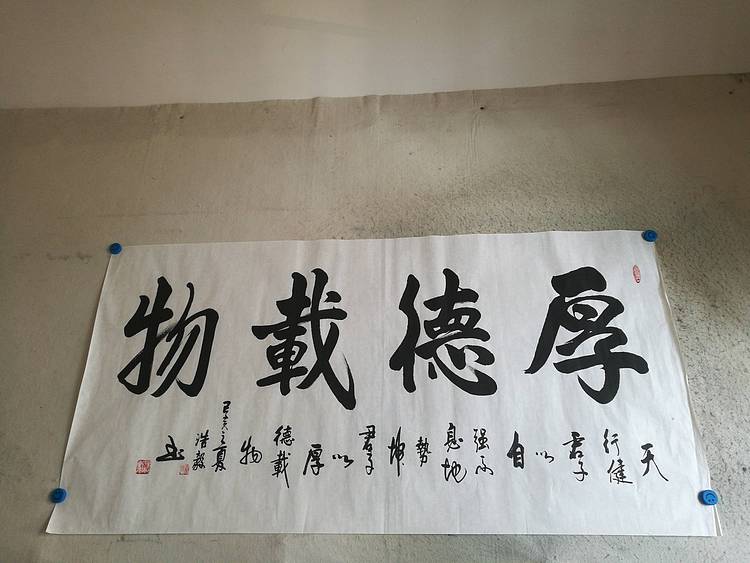 厚德載物
天
行健
君子
以
自
强不
息地
勢
坤
君子
以
厚
德載
物
己亥之夏
浩毅
书